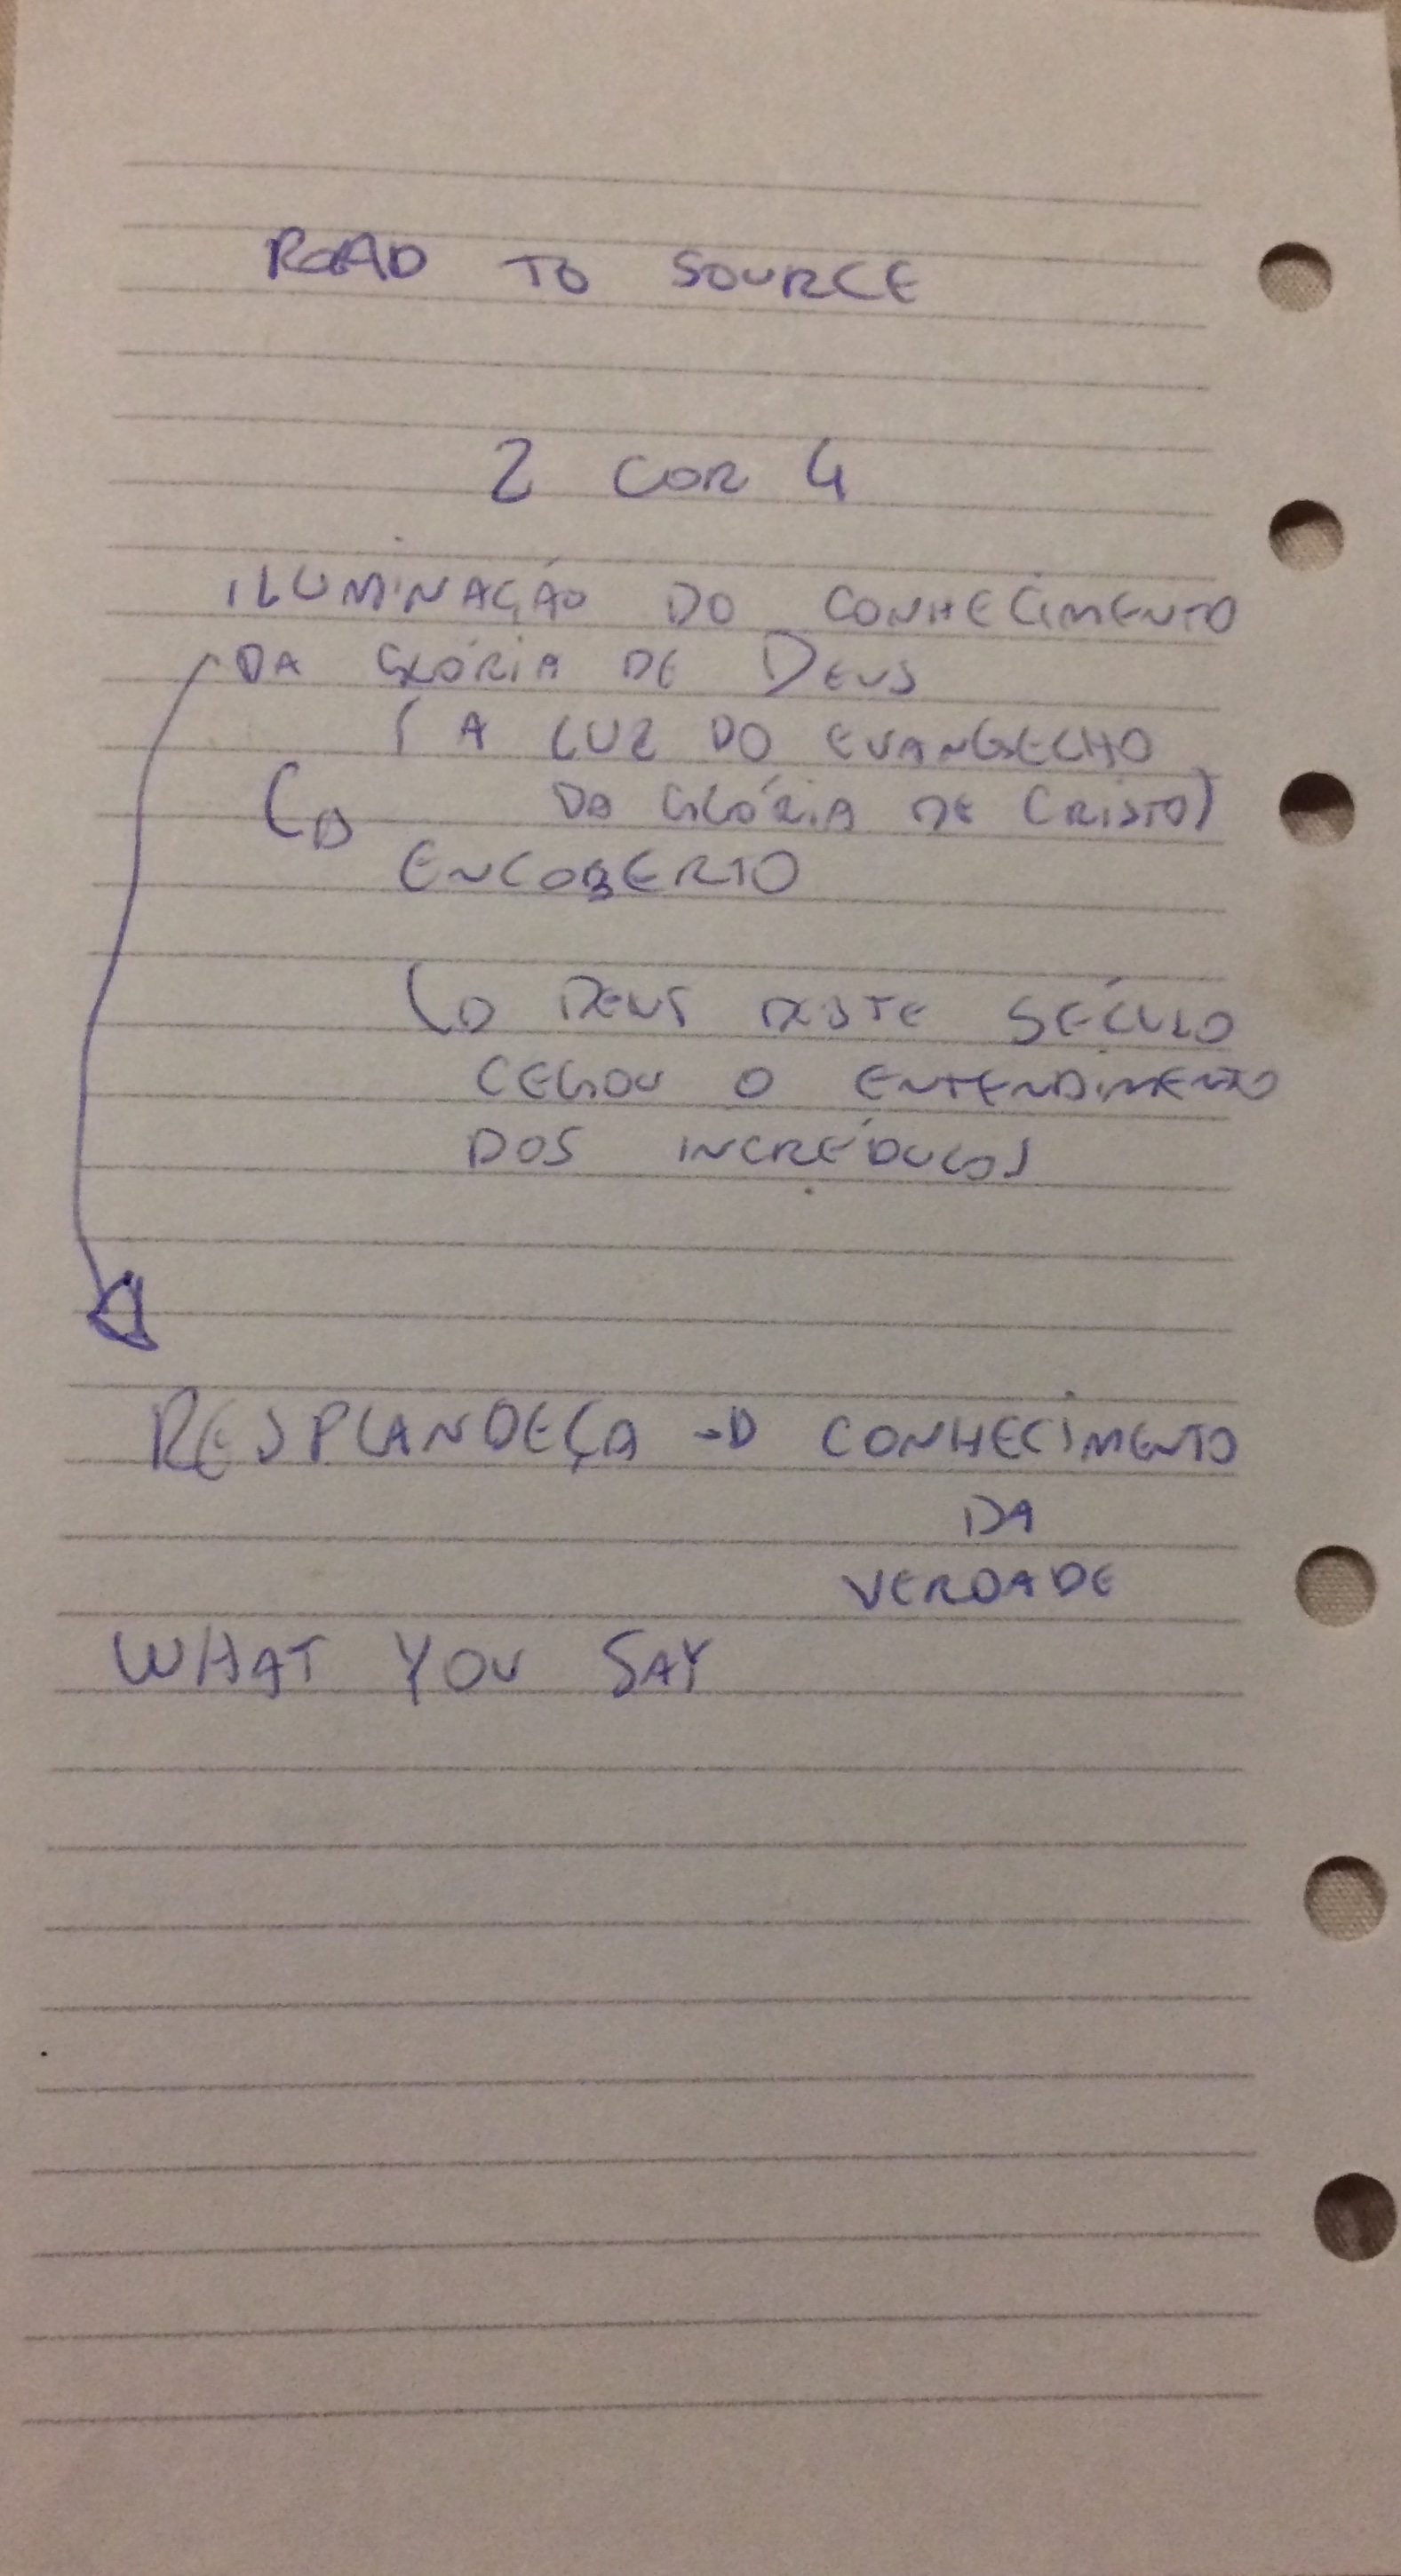 ROAD TO SOURCE
2 COR 4
ILUMINAÇÃO DO CONHECIMENTO
DA GLÓRIA DE DEUS
(A LUZ DO EVANGELHO
DA GLÓRIA DE CRISTO)
ENCOBERTO
DEUS DESTE SÉCULO
CEGOU O ENTENDIMENTO
DOS INCRÉDULOS
RESPLANDEÇA → CONHECIMENTO
DA
VERDADE
WHAT YOU SAY